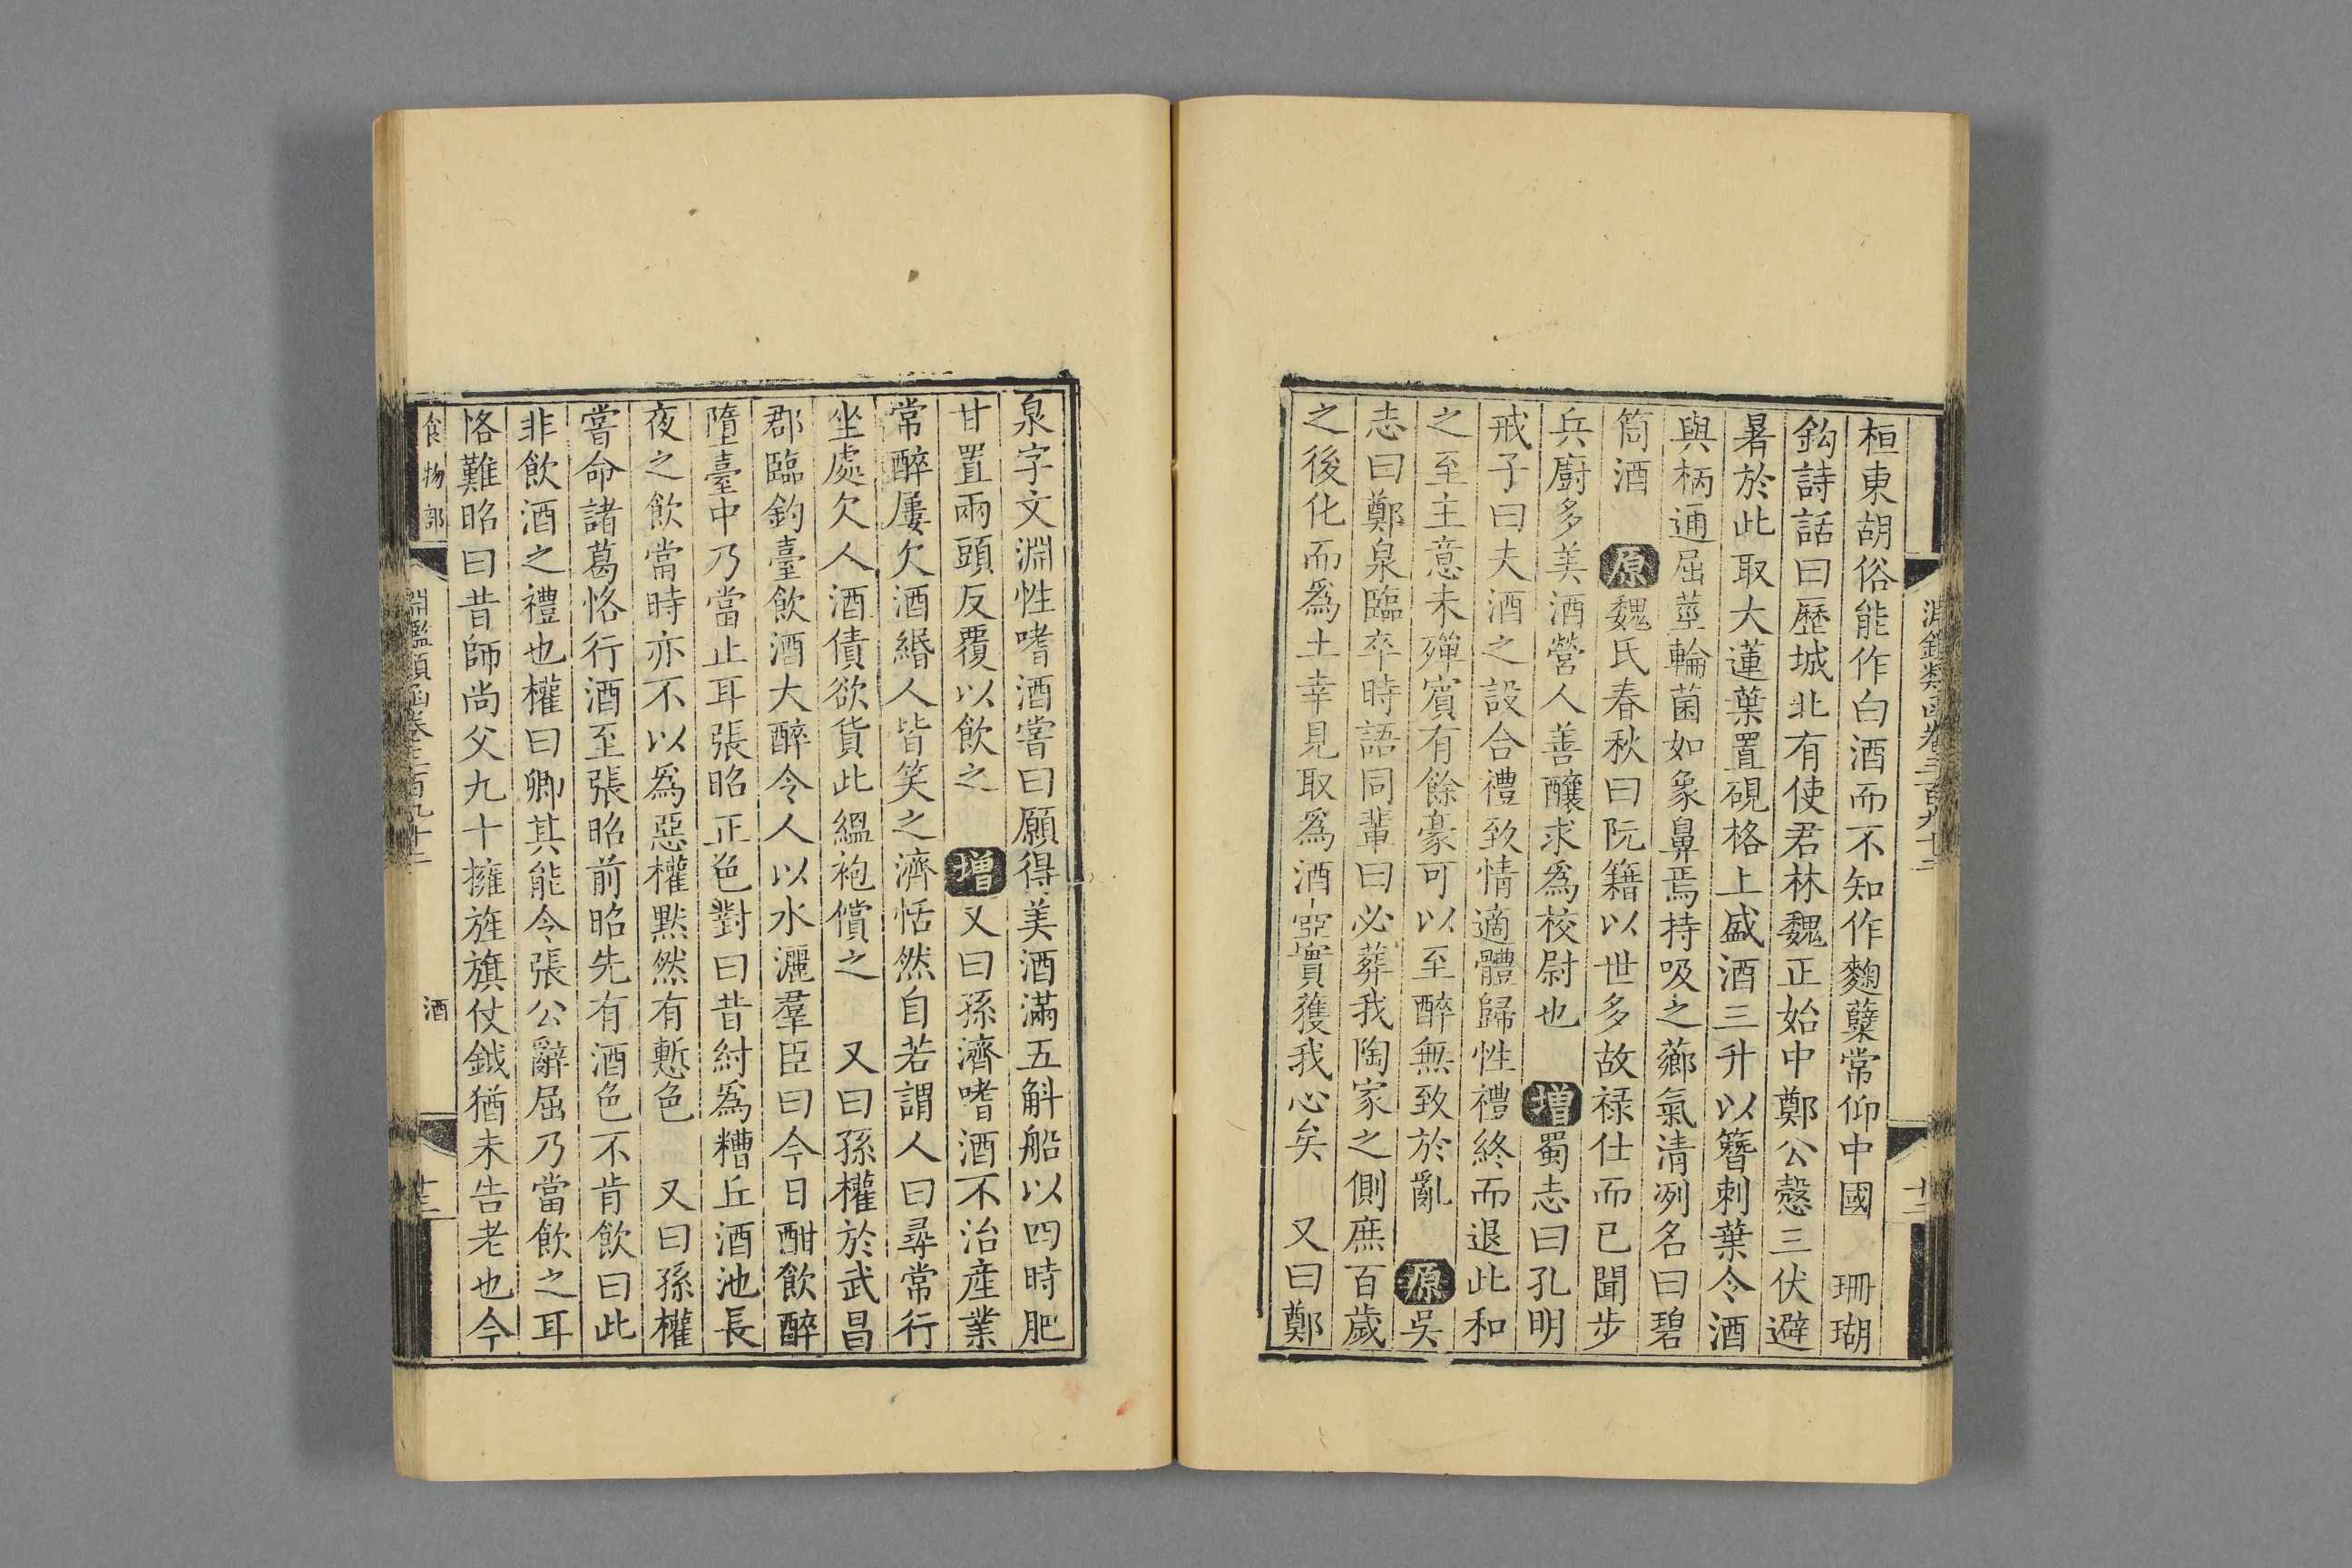 淵鑑類函卷三百九十二
十二
桓東胡俗能作白酒而不知作麴櫱常仰中國　珊瑚
鈎詩話曰歷城北有使君林魏正始中鄭公慤三伏避
暑於此取大蓮葉置硯格上盛酒三升以簪刺葉令酒
與柄通屈莖輪菌如象鼻焉持吸之薌氣清冽名曰碧
筒酒　原魏氏春秋曰阮籍以世多故祿仕而已聞步
兵廚多美酒營人善釀求爲校尉也　增蜀志曰孔明
戒子曰夫酒之設合禮致情適體歸性禮終而退此和
之至主意未殫賓有餘豪可以至醉無致於亂　原吳
志曰鄭泉臨卒時語同輩曰必葬我陶家之側庶百歲
之後化而爲土幸見取爲酒壺實獲我心矣　又曰鄭
泉字文淵性嗜酒嘗曰願得美酒滿五斛船以四時肥
甘置兩頭反覆以飲之　增又曰孫濟嗜酒不治產業
常醉屢欠酒緡人皆笑之濟恬然自若謂人曰尋常行
坐處欠人酒債欲貨此縕袍償之　又曰孫權於武昌
郡臨釣臺飲酒大醉令人以水灑羣臣曰今日酣飲醉
墮臺中乃當止耳張昭正色對曰昔紂爲糟丘酒池長
夜之飲當時亦不以爲惡權默然有慙色　又曰孫權
嘗命諸葛恪行酒至張昭前昭先有酒色不肯飲曰此
非飲酒之禮也權曰卿其能令張公辭屈乃當飲之耳
恪難昭曰昔師尚父九十擁旌旗仗鉞猶未告老也今
食物部
淵鑑類函卷三百九十二
酒
十三